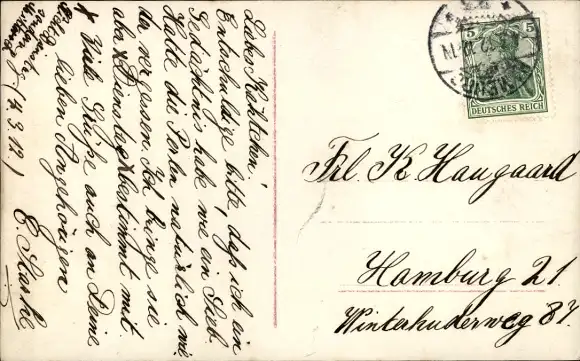 Liebes Kätchen!
Entschuldige bitte, daß ich ein
Gedächtnis habe wie ein Sieb.
Hatte die Perlen natürlich wie
da vergessen. Ich bringe sie
aber Dienstag bestimmt mit.
Viele Grüße auch an Deine
lieben Angehörigen
E. Stahl
14.3.12.)
5 5
DEUTSCHES REICH
Frl. K. Haugaard
Hamburg 21
Winterhuderweg 84.